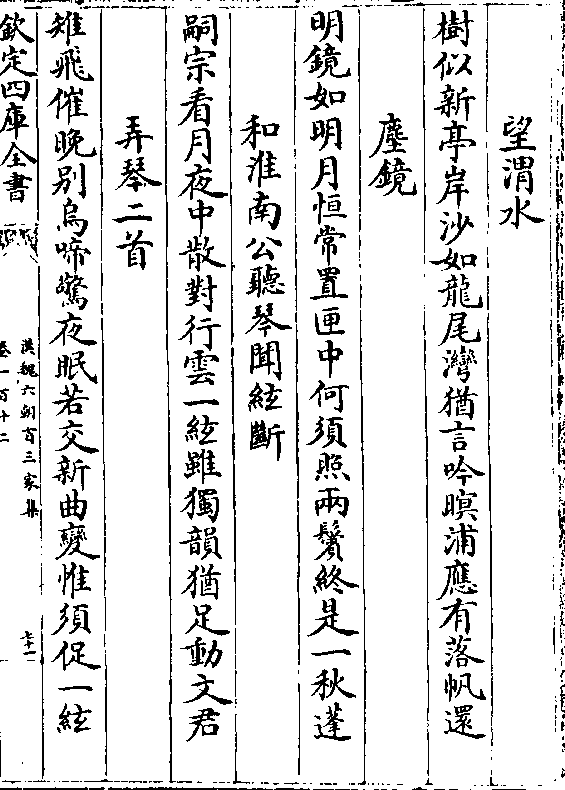 望渭水
樹似新亭岸沙如龍尾灣猶言吟暝浦應有落帆還
塵鏡
明鏡如明月恒常置匣中何須照兩鬢終是一秋蓬
和淮南公聽琴聞絃斷
嗣宗看月夜中散對行雲一絃雖獨韻猶足動文君
弄琴二首
雉飛催晚别烏啼驚夜眠若交新曲變惟須促一絃
欽定四庫全書
漢魏六朝百三家集
卷一百十二